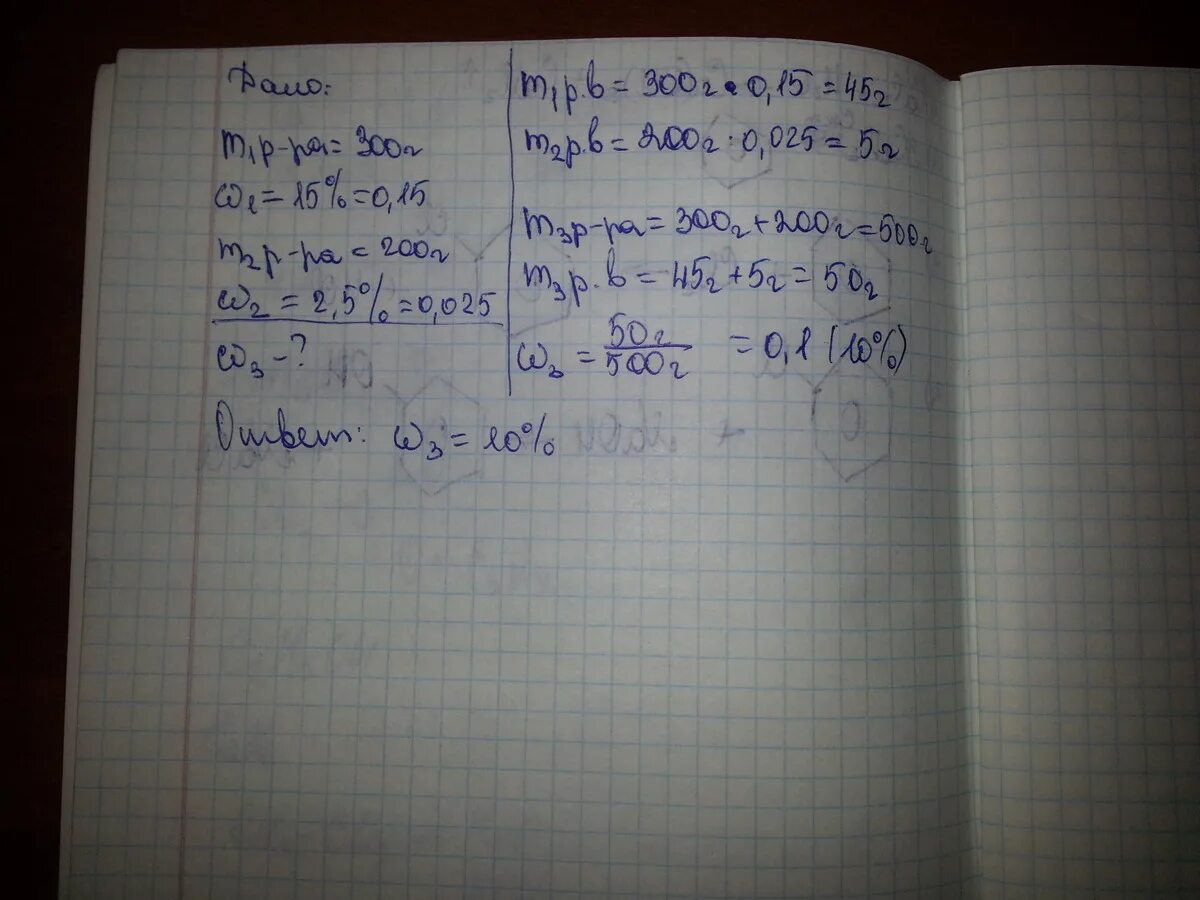 Дано:
m₁р-ра = 300г
ω₁ = 15% = 0,15
m₂р-ра = 200г
ω₂ = 2,5% = 0,025
ω₃ - ?
m₁р.в = 300г · 0,15 = 45г
m₂р.в = 200г · 0,025 = 5г
m₃р-ра = 300г + 200г = 500г
m₃р.в = 45г + 5г = 50г
ω₃ = 50г/500г = 0,1 (10%)
Ответ: ω₃ = 10%